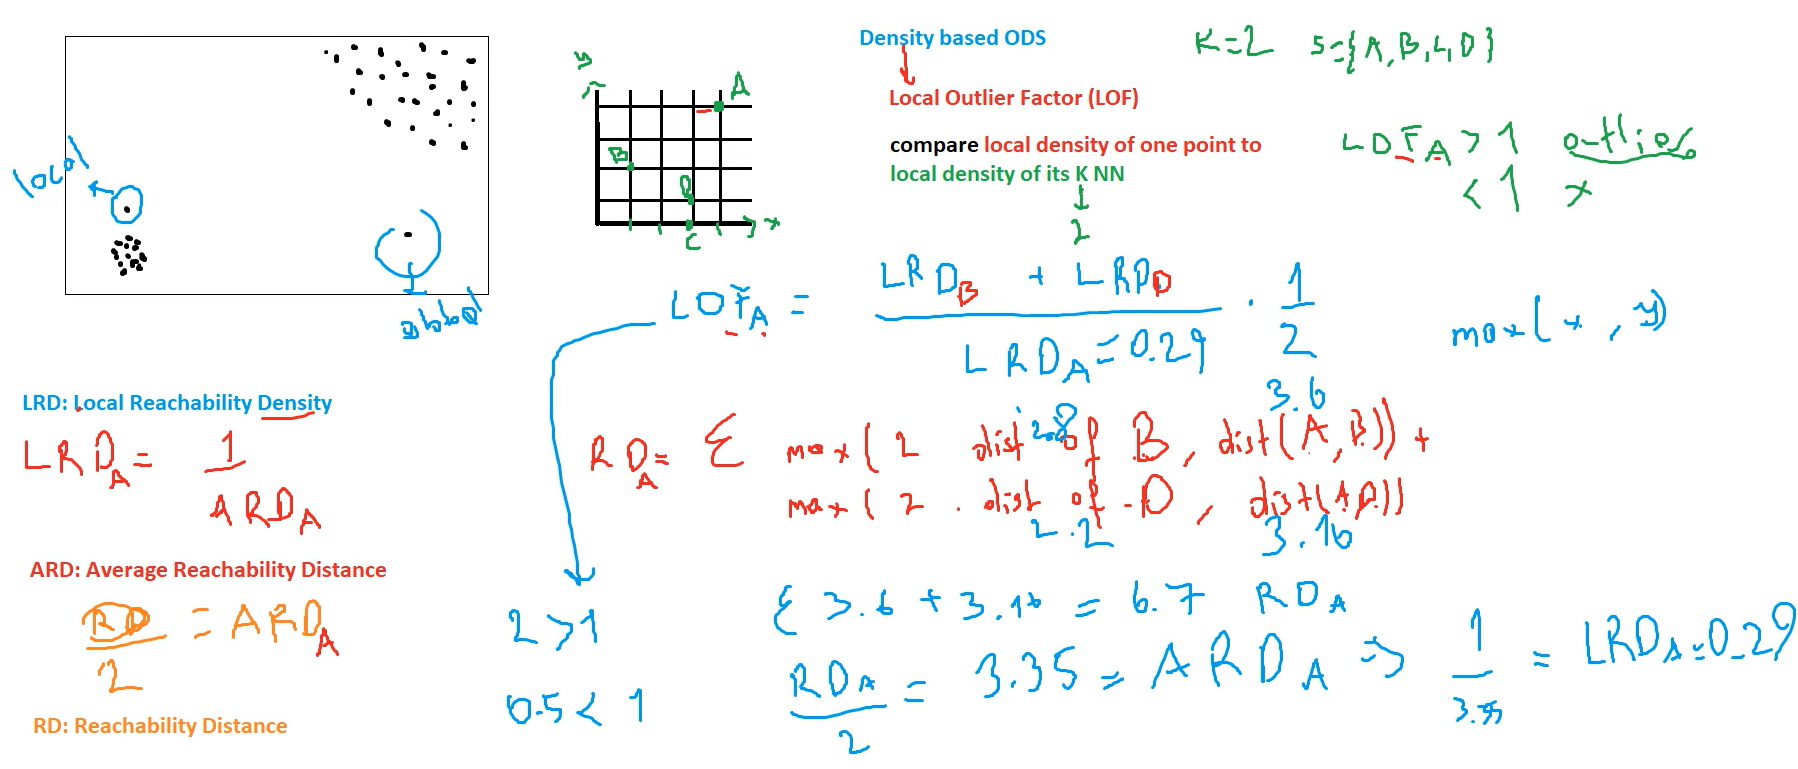 Density based ODS
K=2 S={A,B,C,D}
Local Outlier Factor (LOF)
compare local density of one point to
local density of its K NN
2
LOF_A > 1 outlier
< 1 x
local
global
y
A
B
D
C
x
LOF_A = (LRD_B + LRD_D) / (LRD_A = 0.29) . 1/2
max(x, y)
LRD: Local Reachability Density
LRD_A = 1 / ARD_A
ARD: Average Reachability Distance
RD / 2 = ARD_A
RD: Reachability Distance
2.8 3.6
RD_A = Σ max(2 dist of B, dist(A,B)) +
max(2 . dist of D, dist(A,D))
2.2 3.16
Σ 3.6 + 3.16 = 6.7 RD_A
RD_A / 2 = 3.35 = ARD_A ⇒ 1 / 3.35 = LRD_A = 0.29
2 > 1
0.5 < 1